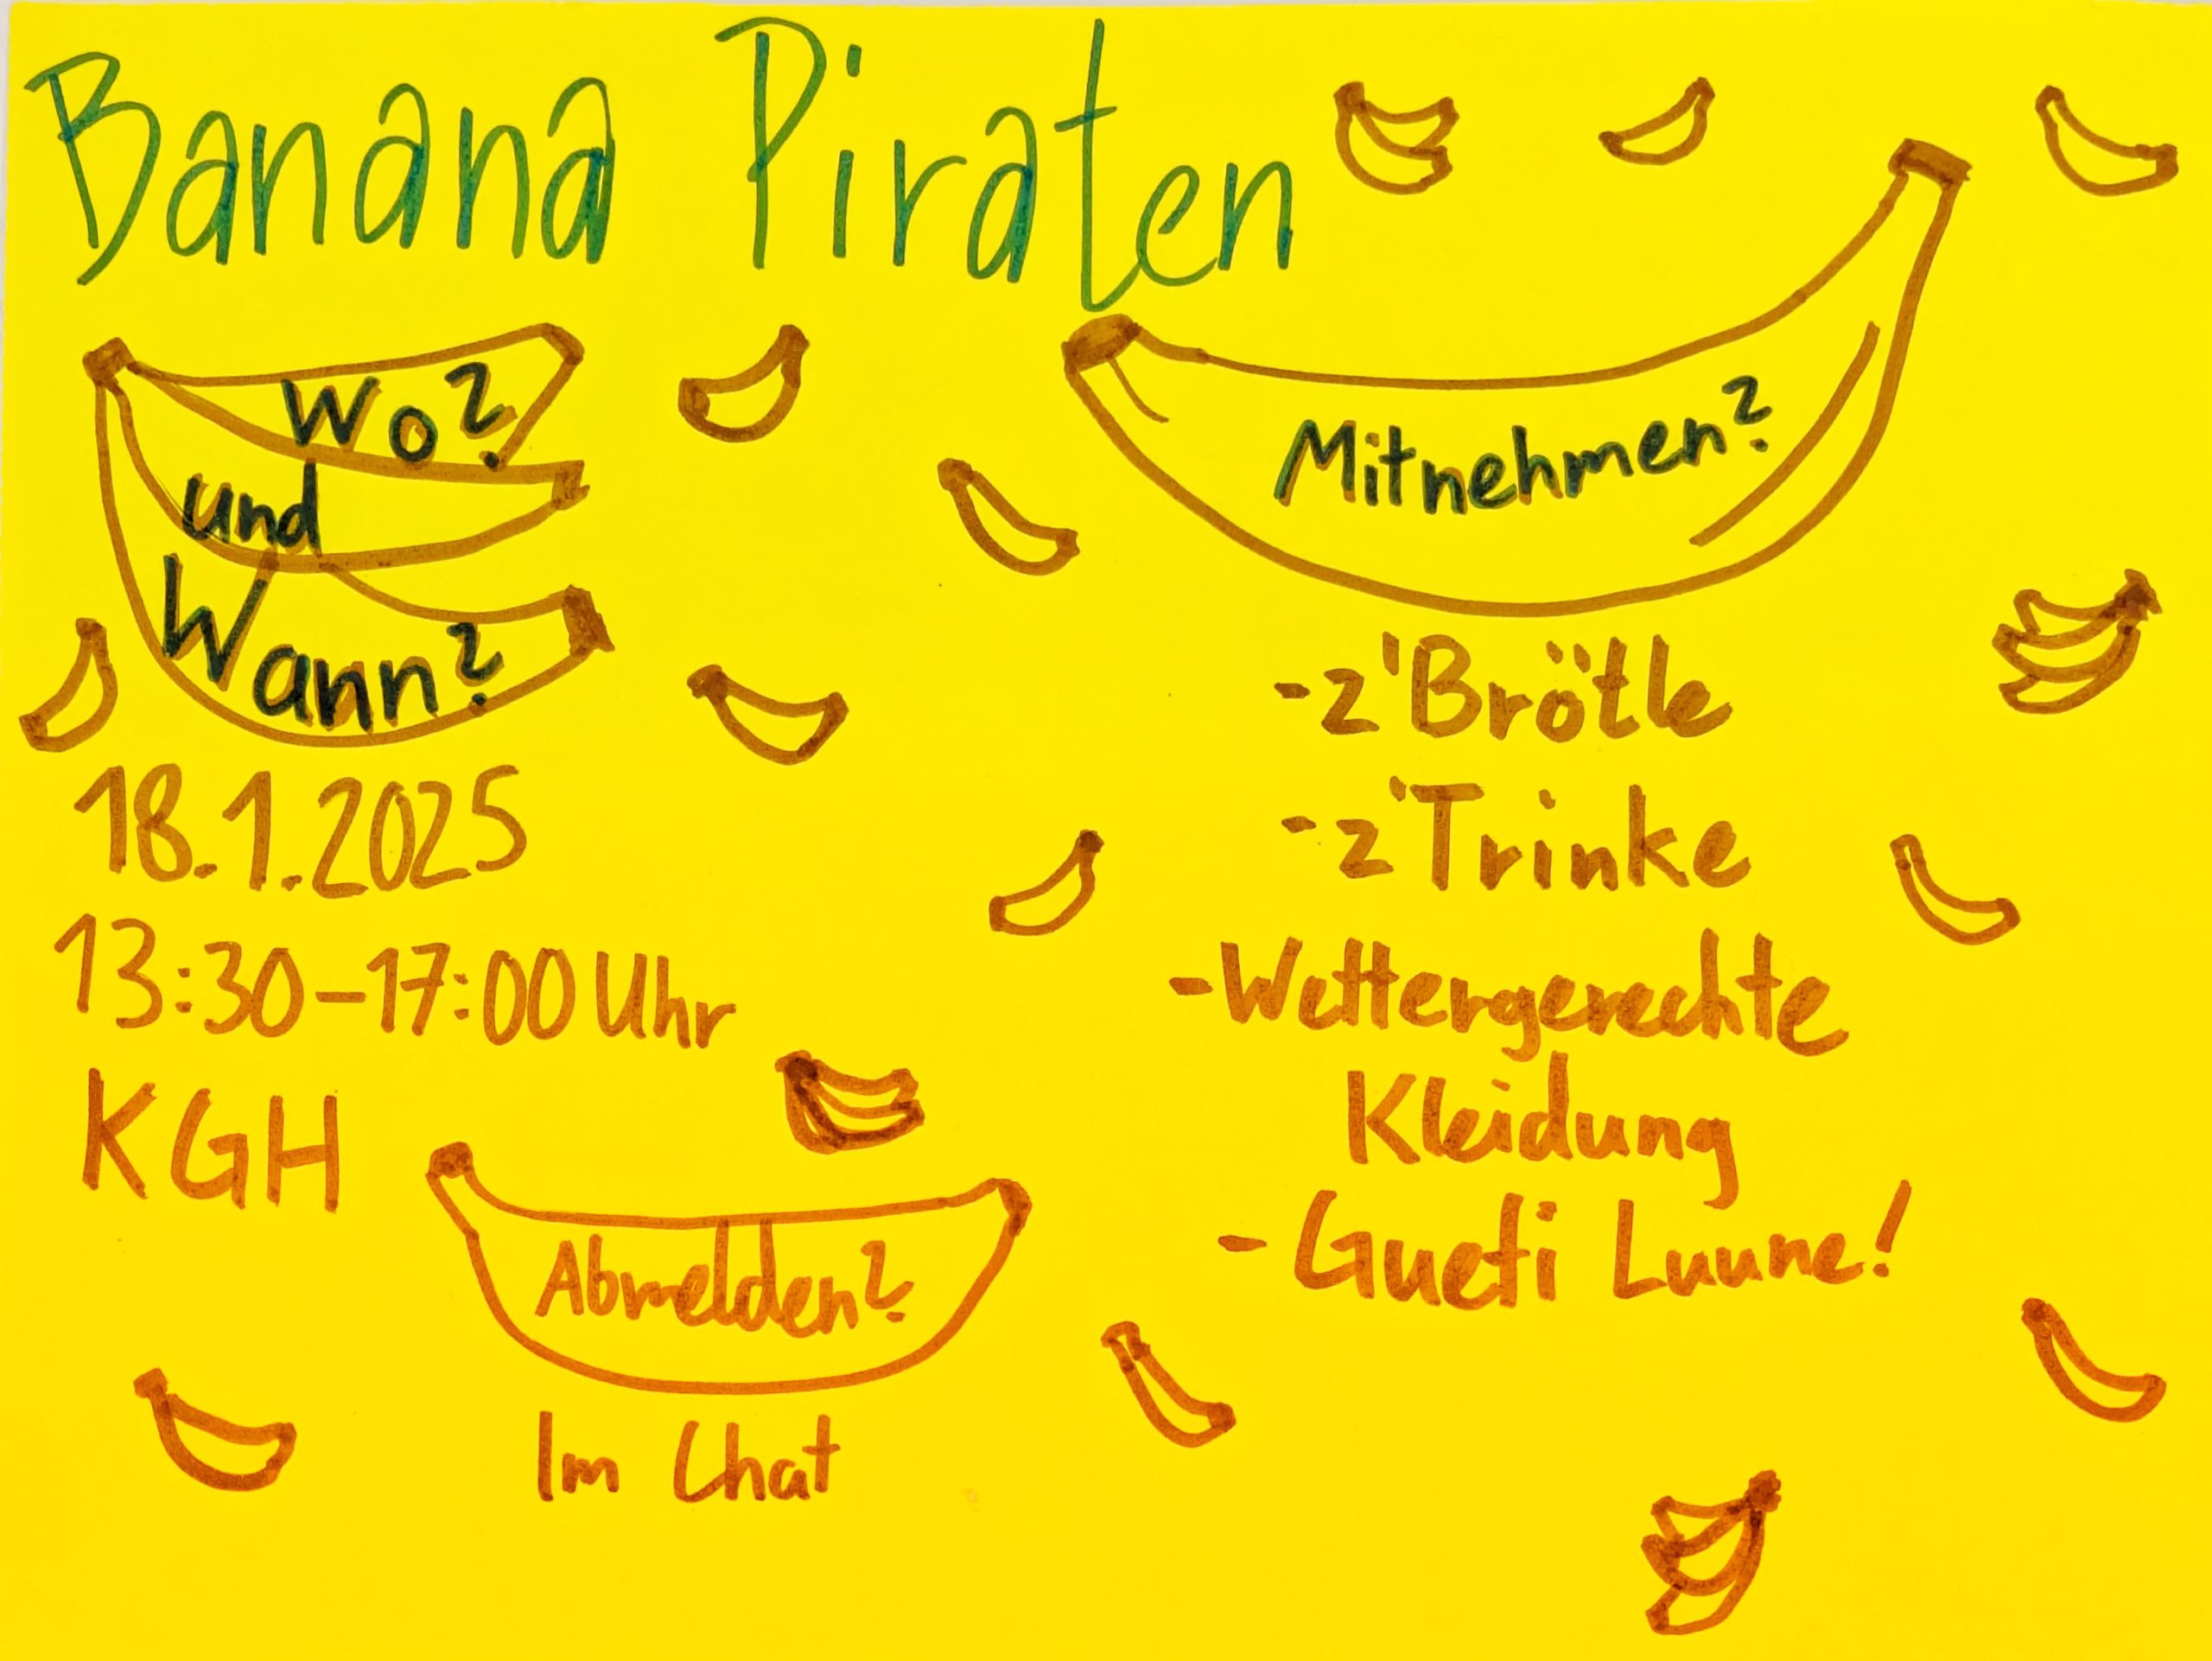 Banana Piraten
Wo?
und
Wann?
18.1.2025
13:30-17:00 Uhr
KGH
Abmelden?
Im Chat
Mitnehmen?
-z'Brötle
-z'Trinke
-Wettergerechte
Kleidung
-Gueti Luune!